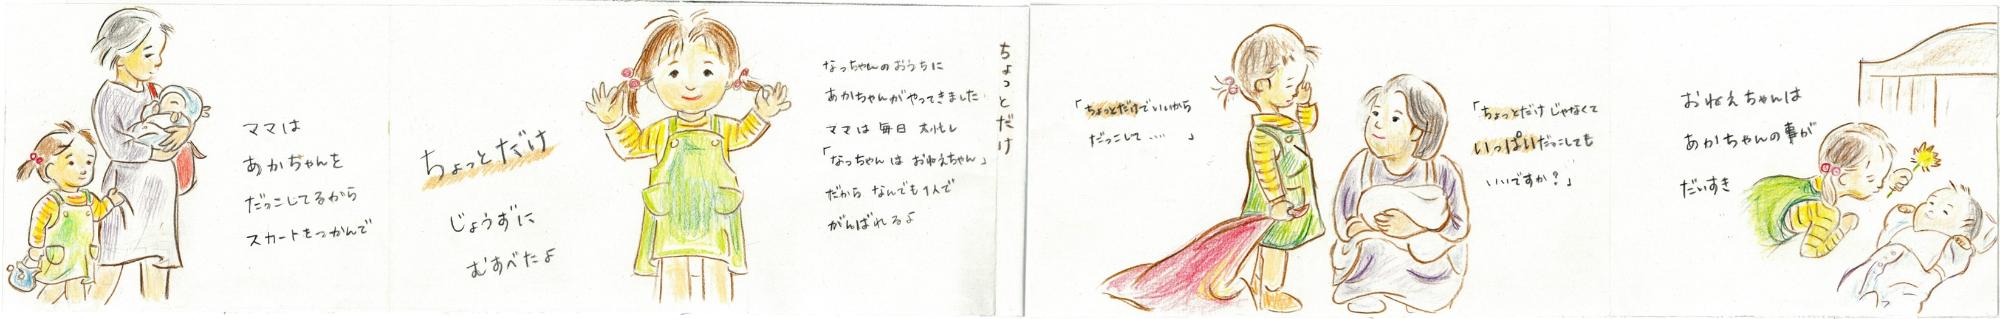 ちょっとだけ
なっちゃんのおうちに
あかちゃんがやってきました
ママは 毎日 大忙し
「なっちゃんは おねえちゃん」
だから なんでも1人で
がんばれるよ
ちょっとだけ
じょうずに
むすべたよ
ママは
あかちゃんを
だっこしてるから
スカートをつかんで
「ちょっとだけでいいから
だっこして‥‥」
「ちょっとだけじゃなくて
いっぱいだっこしても
いいですか?」
おねえちゃんは
あかちゃんの事が
だいすき